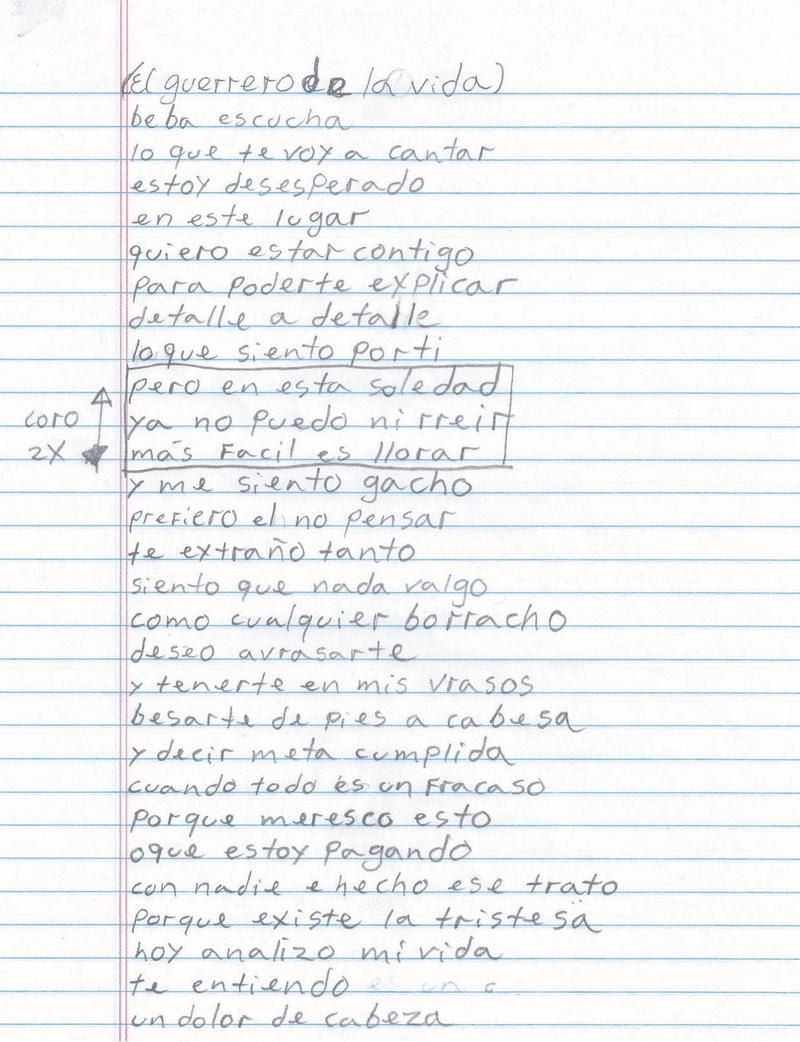 (El guerrero de la vida)
beba escucha
lo que te voy a cantar
estoy desesperado
en este lugar
quiero estar contigo
para poderte explicar
detalle a detalle
lo que siento por ti
pero en esta soledad
coro
ya no puedo ni rreir
2X
más facil es llorar
y me siento gacho
prefiero el no pensar
te extraño tanto
siento que nada valgo
como cualquier borracho
deseo avrasarte
y tenerte en mis vrasos
besarte de pies a cabesa
y decir meta cumplida
cuando todo es un fracaso
porque meresco esto
oque estoy pagando
con nadie e hecho ese trato
porque existe la tristesa
hoy analizo mi vida
te entiendo es un
un dolor de cabeza